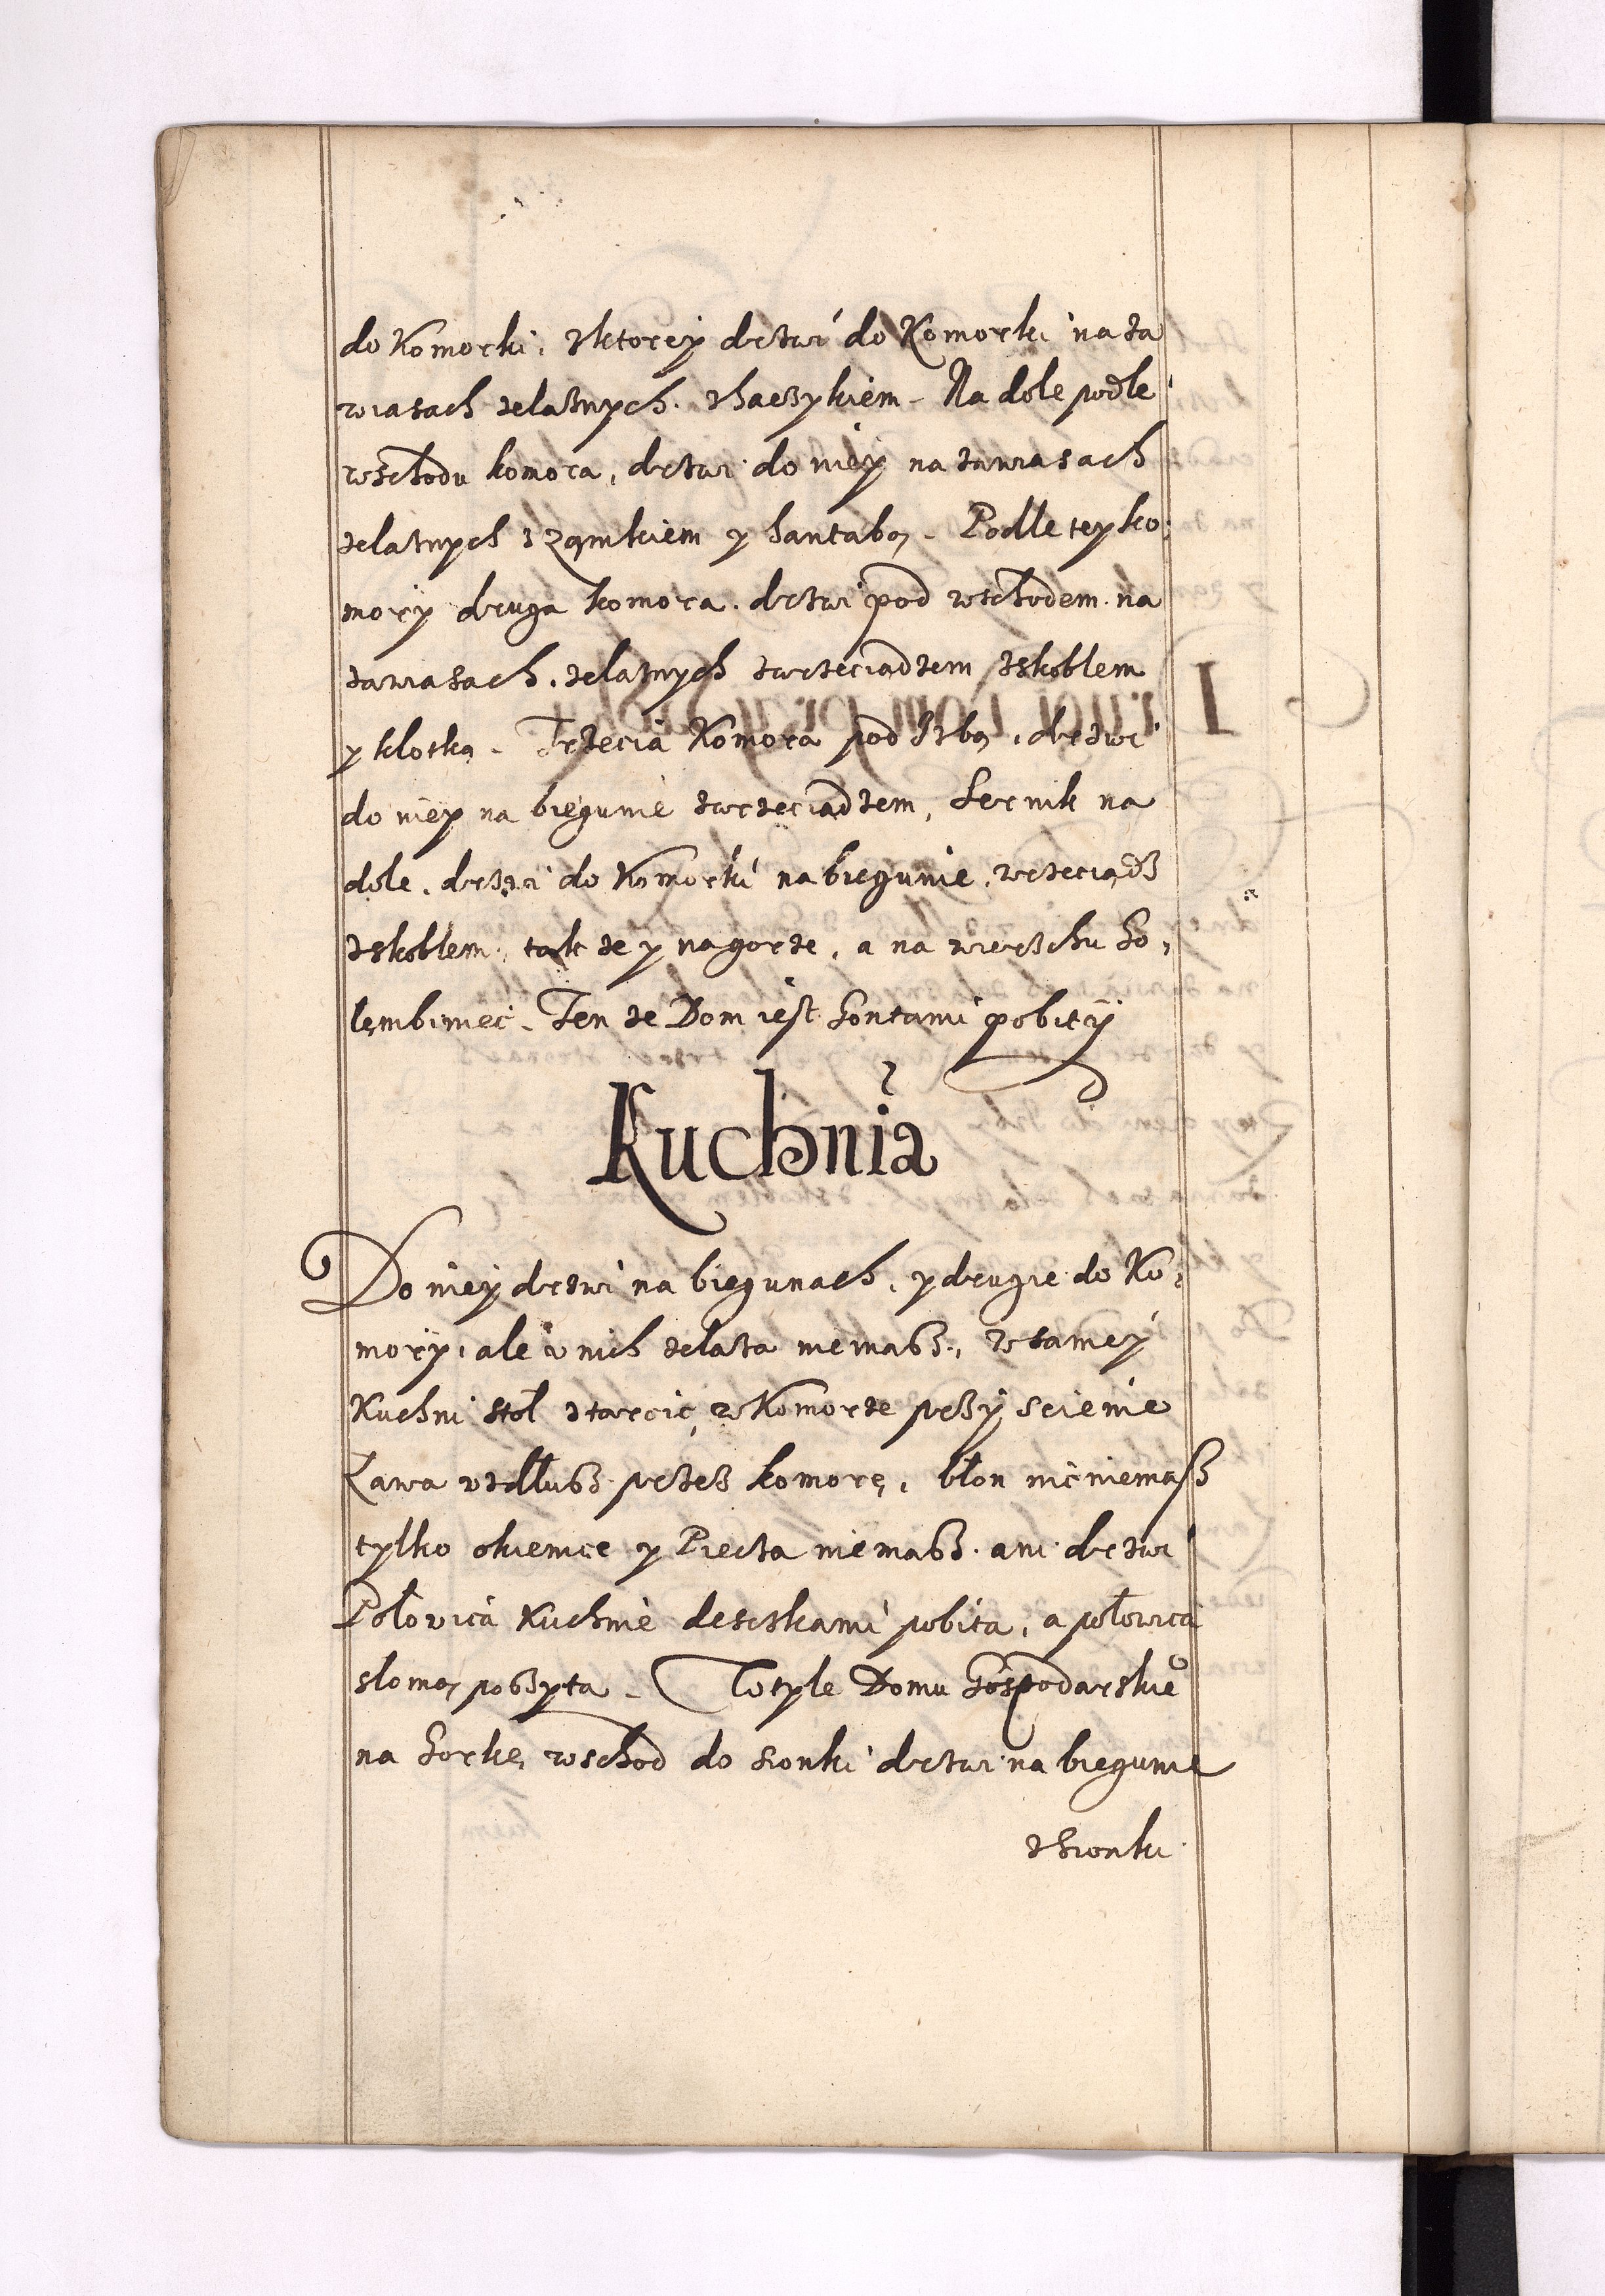 do Komorki, zktorey drzwi do Komorki na za
wiasach zelaznych. zhaczykiem - Na dole podle
wschodu komora, drzwi do niey na zawiasach
zelaznych z zamkiem y hantabą - Podle tey ko,
mory druga komora. drzwi pod wschodem na
zawiasach, zelaznych zwrzeciądzem zskoblem
y klotką - Trzecia Komora pod Izbą, drzwi
do niey na biegunie zwrzeciądzem, Sernik na
dole, drzwi do Komorki na biegunie, wrzeciądz
zskoblem, tak ze y nagorze, a na wierzchu Go,
lęmbiniec - Ten ze Dom iest Gontami pobity
Kuchnia
Do niey drzwi na biegunach, y drugie do Ko,
mory, ale u nich zelaza niemasz, w samey
Kuchni stoł ztarcic, w Komorze przy scienie
Ława wzdłusz przez komorę, błon nic niemasz
tylko okienice y Pieca niemasz ani drzwi
Połowica Kuchnie desczkami pobita, a połowica
słomą poszyta - Totyle Domu Gospodarskie⁰
na Gorkę wschod do sionki drzwi na biegunie
zSionki